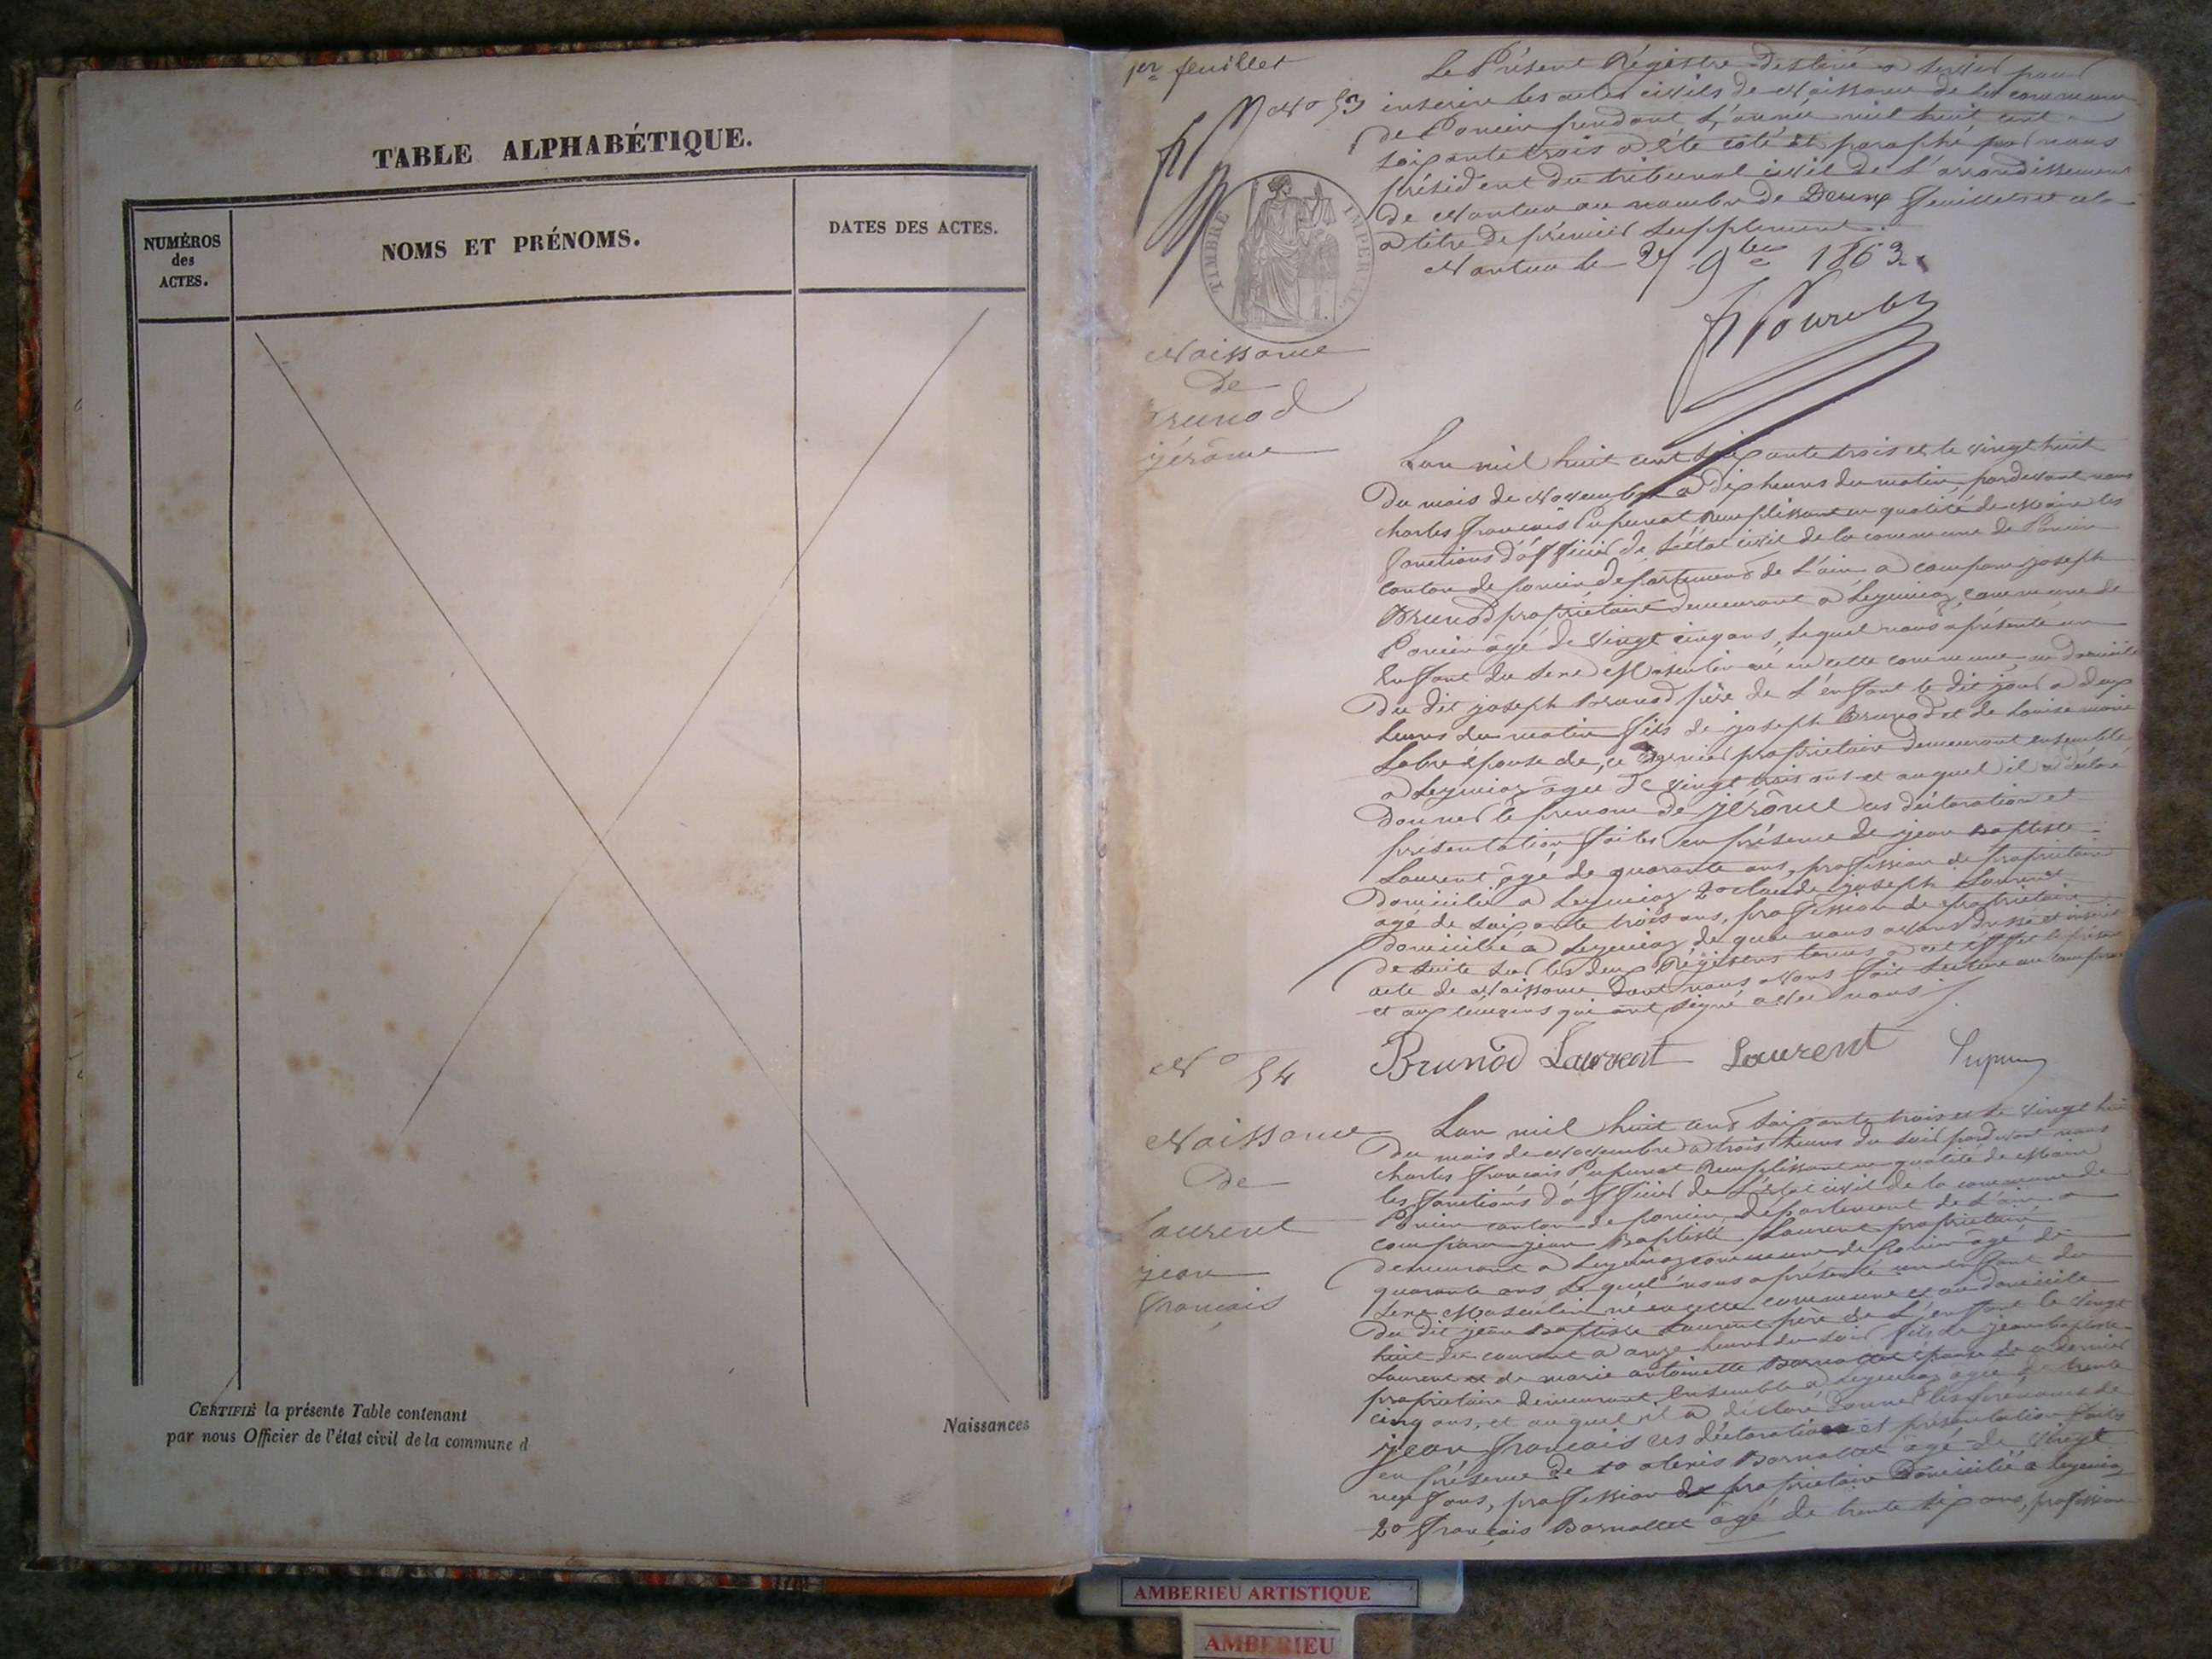 TABLE ALPHABÉTIQUE.
NUMÉROS
des
ACTES.
NOMS ET PRÉNOMS.
DATES DES ACTES.
CERTIFIÉ la présente Table contenant
Naissances
par nous Officier de l'état civil de la commune d
1er feuillet
No 53
TIMBRE IMPERIAL
Naissance
de
Brunod
jérôme
Le Présent Régistre destiné a servir pour
inscrire les actes civils de Naissance de la commune
de Poncin pendant L'année mil huit cent
soixante trois a été coté et paraphé par nous
président du tribunal civil de L'arrondissement
de Nantua au nombre de Deux feuillets et ce
a titre de premier supplement.
Nantua le 27 9bre 1863
Lan mil huit cent soixante trois et le vingt huit
Du mois de Novembre a dix heures du matin, pardevant nous
charles françois Pupunat Remplissant en qualité de Maire les
fonctions d'officier de L'état civil de la commune de Poncin
canton de poncin departement de L'ain a comparu joseph
Brunod propriétaire demeurant a Leymiaz, commune de
Poncin âgé de vingt cinq ans, Lequel nous a présenté un
Enfant du sexe Masculin né en cette commune au domicile
Du dit joseph Brunod père de L'enfant le dit jour a deux
heures du matin fils de joseph Brunod et de Louise marie
Labre épouse de, ce dernier propriétaire demeurant ensemble
a Leymiaz âgée de vingt trois ans et auquel il a déclaré
Donner le prenom de jérôme ces déclaration et
présentation faites en présence de jean Baptiste
Laurent âgé de quarante ans, profession de propriétaire
Domicilié a Leymiaz 2o claude joseph Laurent
agé de soixante trois ans, profession de propriétaire
Domicilié a Leymiaz de quoi nous avons dressé et inscrit
de suite sur les deux Régistres tenus a cet effet le présent
acte de Naissance dont nous avons fait Lecture au comparant
et aux temoins qui ont signé avec nous
Brunod Laurent Laurent
No 54
Naissance
De
Laurent
jean
françois
Lan mil huit cent soixante trois et le vingt huit
Du mois de Novembre a trois heures du soir pardevant nous
charles françois Pupunat Remplissant en qualité de Maire
les fonctions d'officier de L'état civil de la commune de
Poncin canton de poncin département de L'ain a
comparu jean Baptiste Laurent propriétaire
demeurant a Leymiaz commune de Poncin âgé de
quarante ans Lequel nous a présenté un enfant du
sexe Masculin né en cette commune et au domicile
Du dit jean Baptiste Laurent père de L'enfant le vingt
huit du courant a onze heures du soir fils de jean baptiste
Laurent et de marie antoinette Bornattet épouse de ce dernier
propriétaire demeurant Ensemble a Leymiaz âgée de trente
cinq ans, et auquel il a déclaré Donner les prénoms de
jean françois ces déclaration et présentation faites
en présence de 1o alexis Bornattet âgé de vingt
neuf ans, profession de propriétaire Domicilié a Leymiaz
2o françois Bornattet âgé de trente six ans, profession
AMBERIEU ARTISTIQUE
AMBERIEU